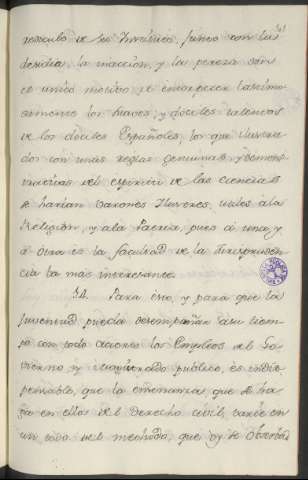 de su Instituto, junto con la
desidia, la inaccion, y la pereza son
el unico motivo de
simamente los buenos, y dociles talentos
de los dociles Españoles, los que ilustra
dos con unas reglas genuinas, y demons
trativas del espiritu de las ciencias
se harian Varones Ilustres, utiles a la
Religion, y a la Patria pues a una, y
a otra es la facultad de la Jurispruden
cia la mas interesante.
34. Para esto, y para que la
Juventud pueda desempeñar a su tiem
po con todo acierto los Empleos del Go
vierno, y publico, es indis
pensable, que la enseñanza que se ha
ga en ellos del Derecho civil, varie en
un todo del methodo, que oy se observa